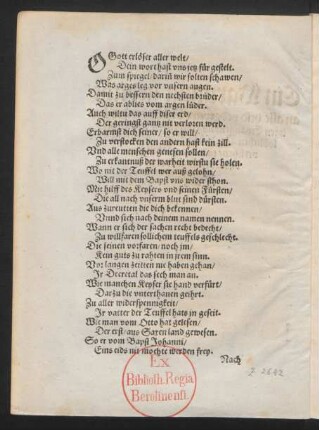 O Gott erlöser aller welt/
Dein wort hast uns yez für gestelt.
Zům spiegel/ dariñ wir solten schawen/
Was arges leg vor unsern augen.
Damit zů bessern den nechsten brüder/
Das er ablies vom argen lüder.
Auch wiltu das auff diser erd/
Der geringst gantz nit verloren werd.
Erbarmst dich seiner/ so er will/
Zu verstocken den andern hast kein zill.
Und alle menschen genesen sollen/
Zu erkantnuß der warheit wirstu sie holen.
Wo nit der Teuffel wer auß gelohn/
Will mit dem Bapst uns wider sthon.
Mit hilff des Keysers und seinen Fürsten/
Die all nach unserm blut sind dürsten.
Aus zurutten die dich bekennen/
Unnd sich nach deinem namen nennen.
Wann er sich der sachen recht bedecht/
Zu willfaren sollichem teuffels geschlecht.
Die seinen vorfaren noch im/
Kein guts zu rahten in jrem sinn.
Vor langen zeitten nie haben gehan/
Jr Decretal das sech man an.
Wie manchen Keyser sie hand verfürt/
Darzu die unterthanen gehrt.
Zu aller widerspennigkeit/
Jr vatter der Teuffel hats in geseit.
Wie man vom Otto hat gelesen/
Der erst/ aus Saxen land gewesen.
So er vom Bapst Johanni/
Eins eids nie mochte werden frey.
Nach
Ex
Biblioth. Regia
Berolinensi.